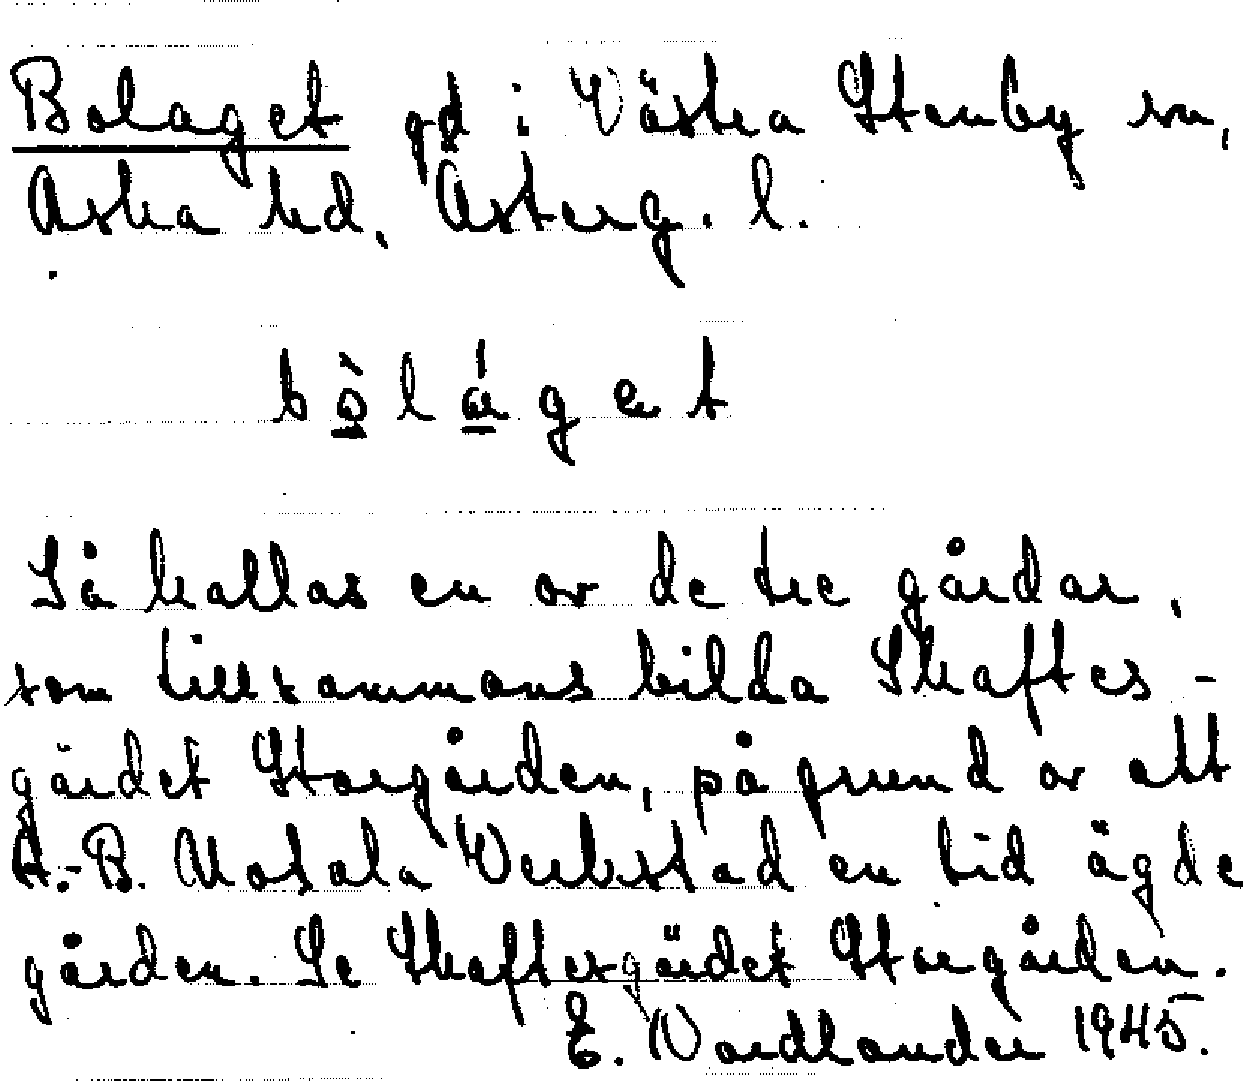 Bolaget gd i Västra Stenby sn,
Aska hd, Österg. l.
bo̱̊̀lág̱et
Så kallas en av de tre gårdar,
som tillsammans bilda Skaftes-
gärdet Storgården, på grund av att
A.-B. Motala Verkstad en tid ägde
gården. Se Skaftesgärdet Storgården.
E. Nordlander 1945.